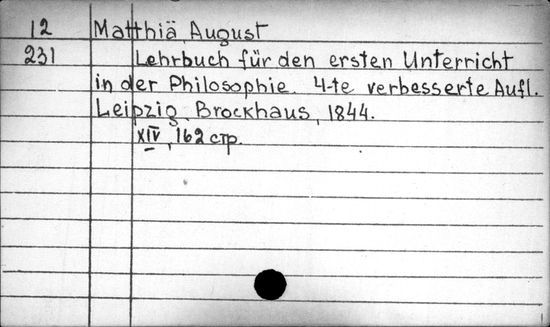 12 Matthiä, August
231 Lehrbuch für den ersten Unterricht
in der Philosophie. 4-te verbesserte Aufl.
Leipzig, Brockhaus, 1844.
XIV, 162 стр.